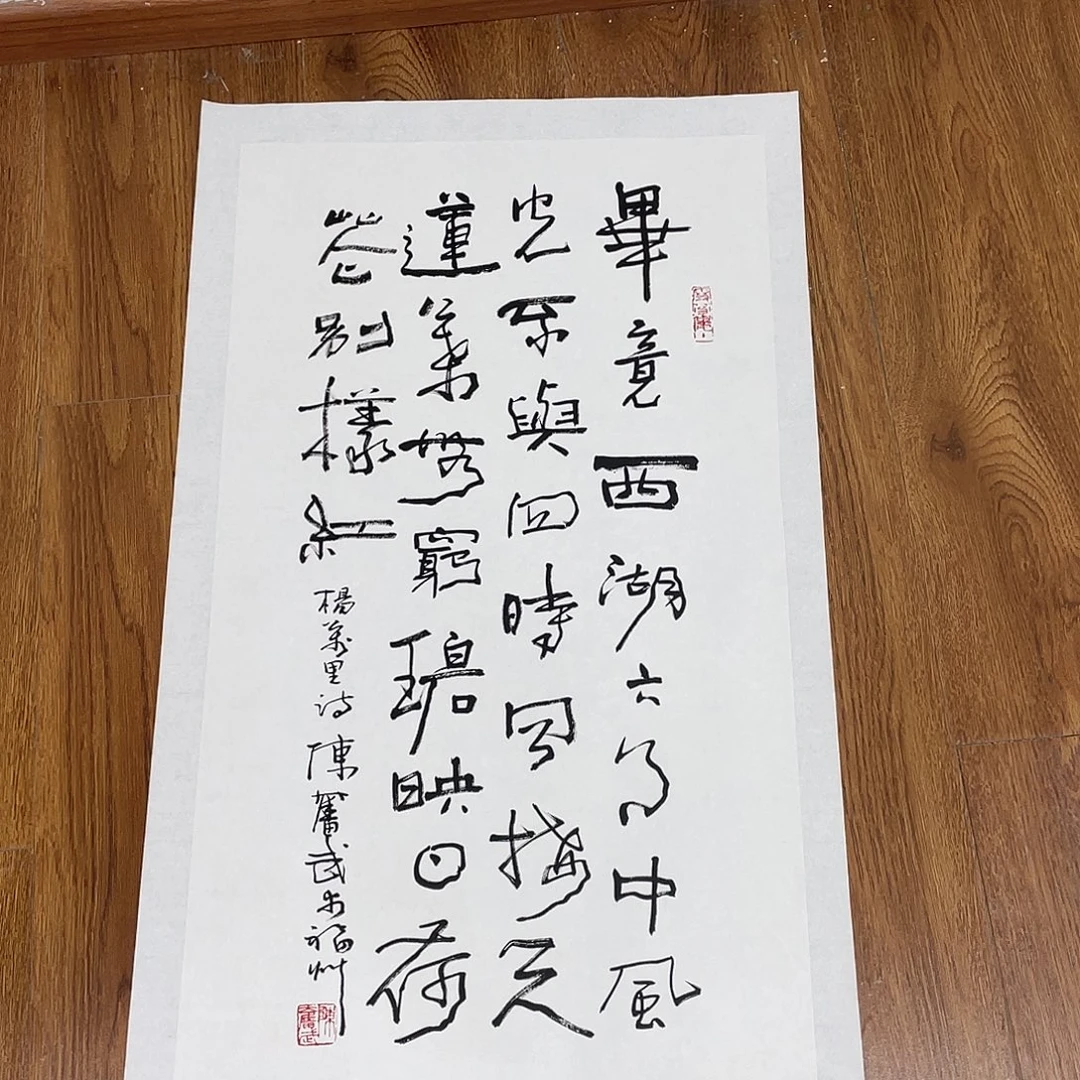 畢竟西湖六月中風
光不與四時同接天
蓮葉無窮碧映日荷
花别樣紅
楊萬里詩 陳奮武書福州